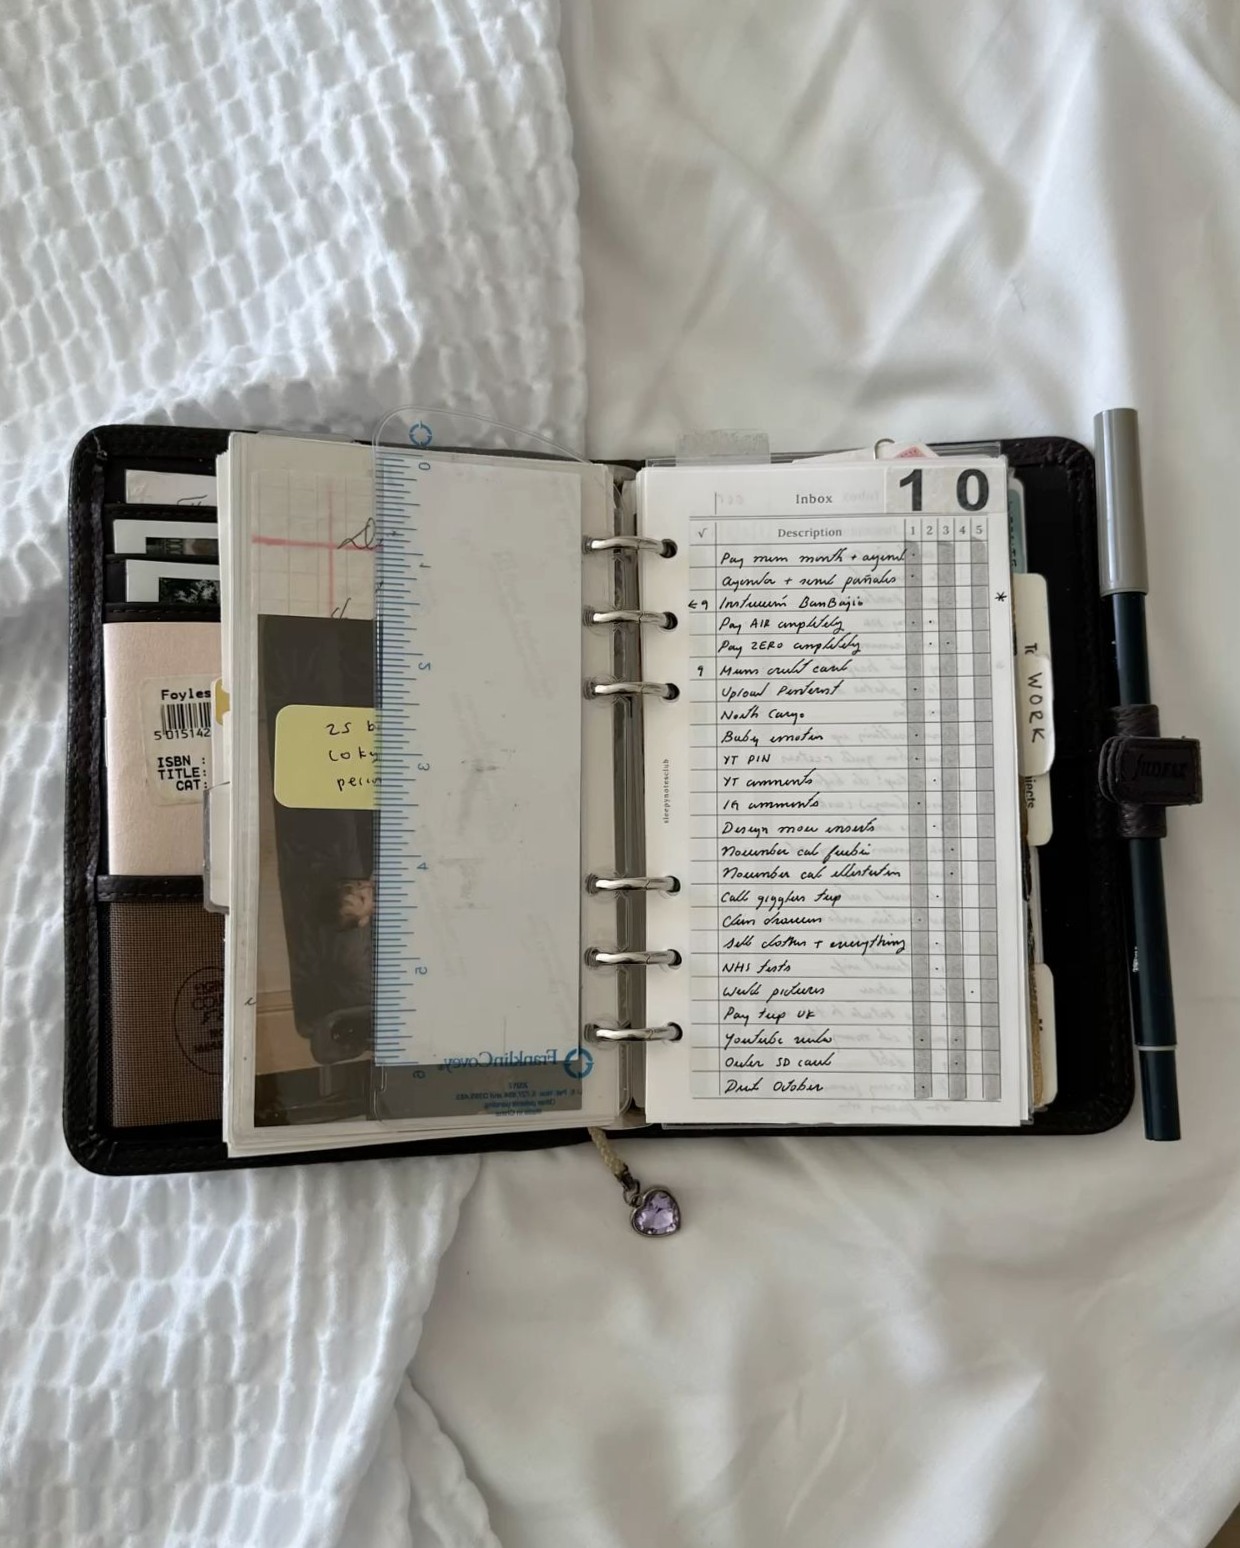 Foyles
5 015142
ISBN :
TITLE:
CAT:
25 b
0
1
2
3
4
5
6
FranklinCovey
Made in China
Inbox
10
√ Description 1 2 3 4 5
Pay mum month + agend
agenda + send pañales
BanBajio
Pay AIR completely
Pay ZERO completely
9 Mums credit card
Upload Pinterest
North Cargo
Baby emotes
YT PIN
YT comments
IG comments
Design more inserts
November cal freebie
November cal illustration
Call trip
Clean drawers
Sell clothes + everything
NHS tests
Weed pictures
Pay trip UK
Youtube
Order SD card
Dutt October
sleepynotesclub
WORK
jects
FILOFAX